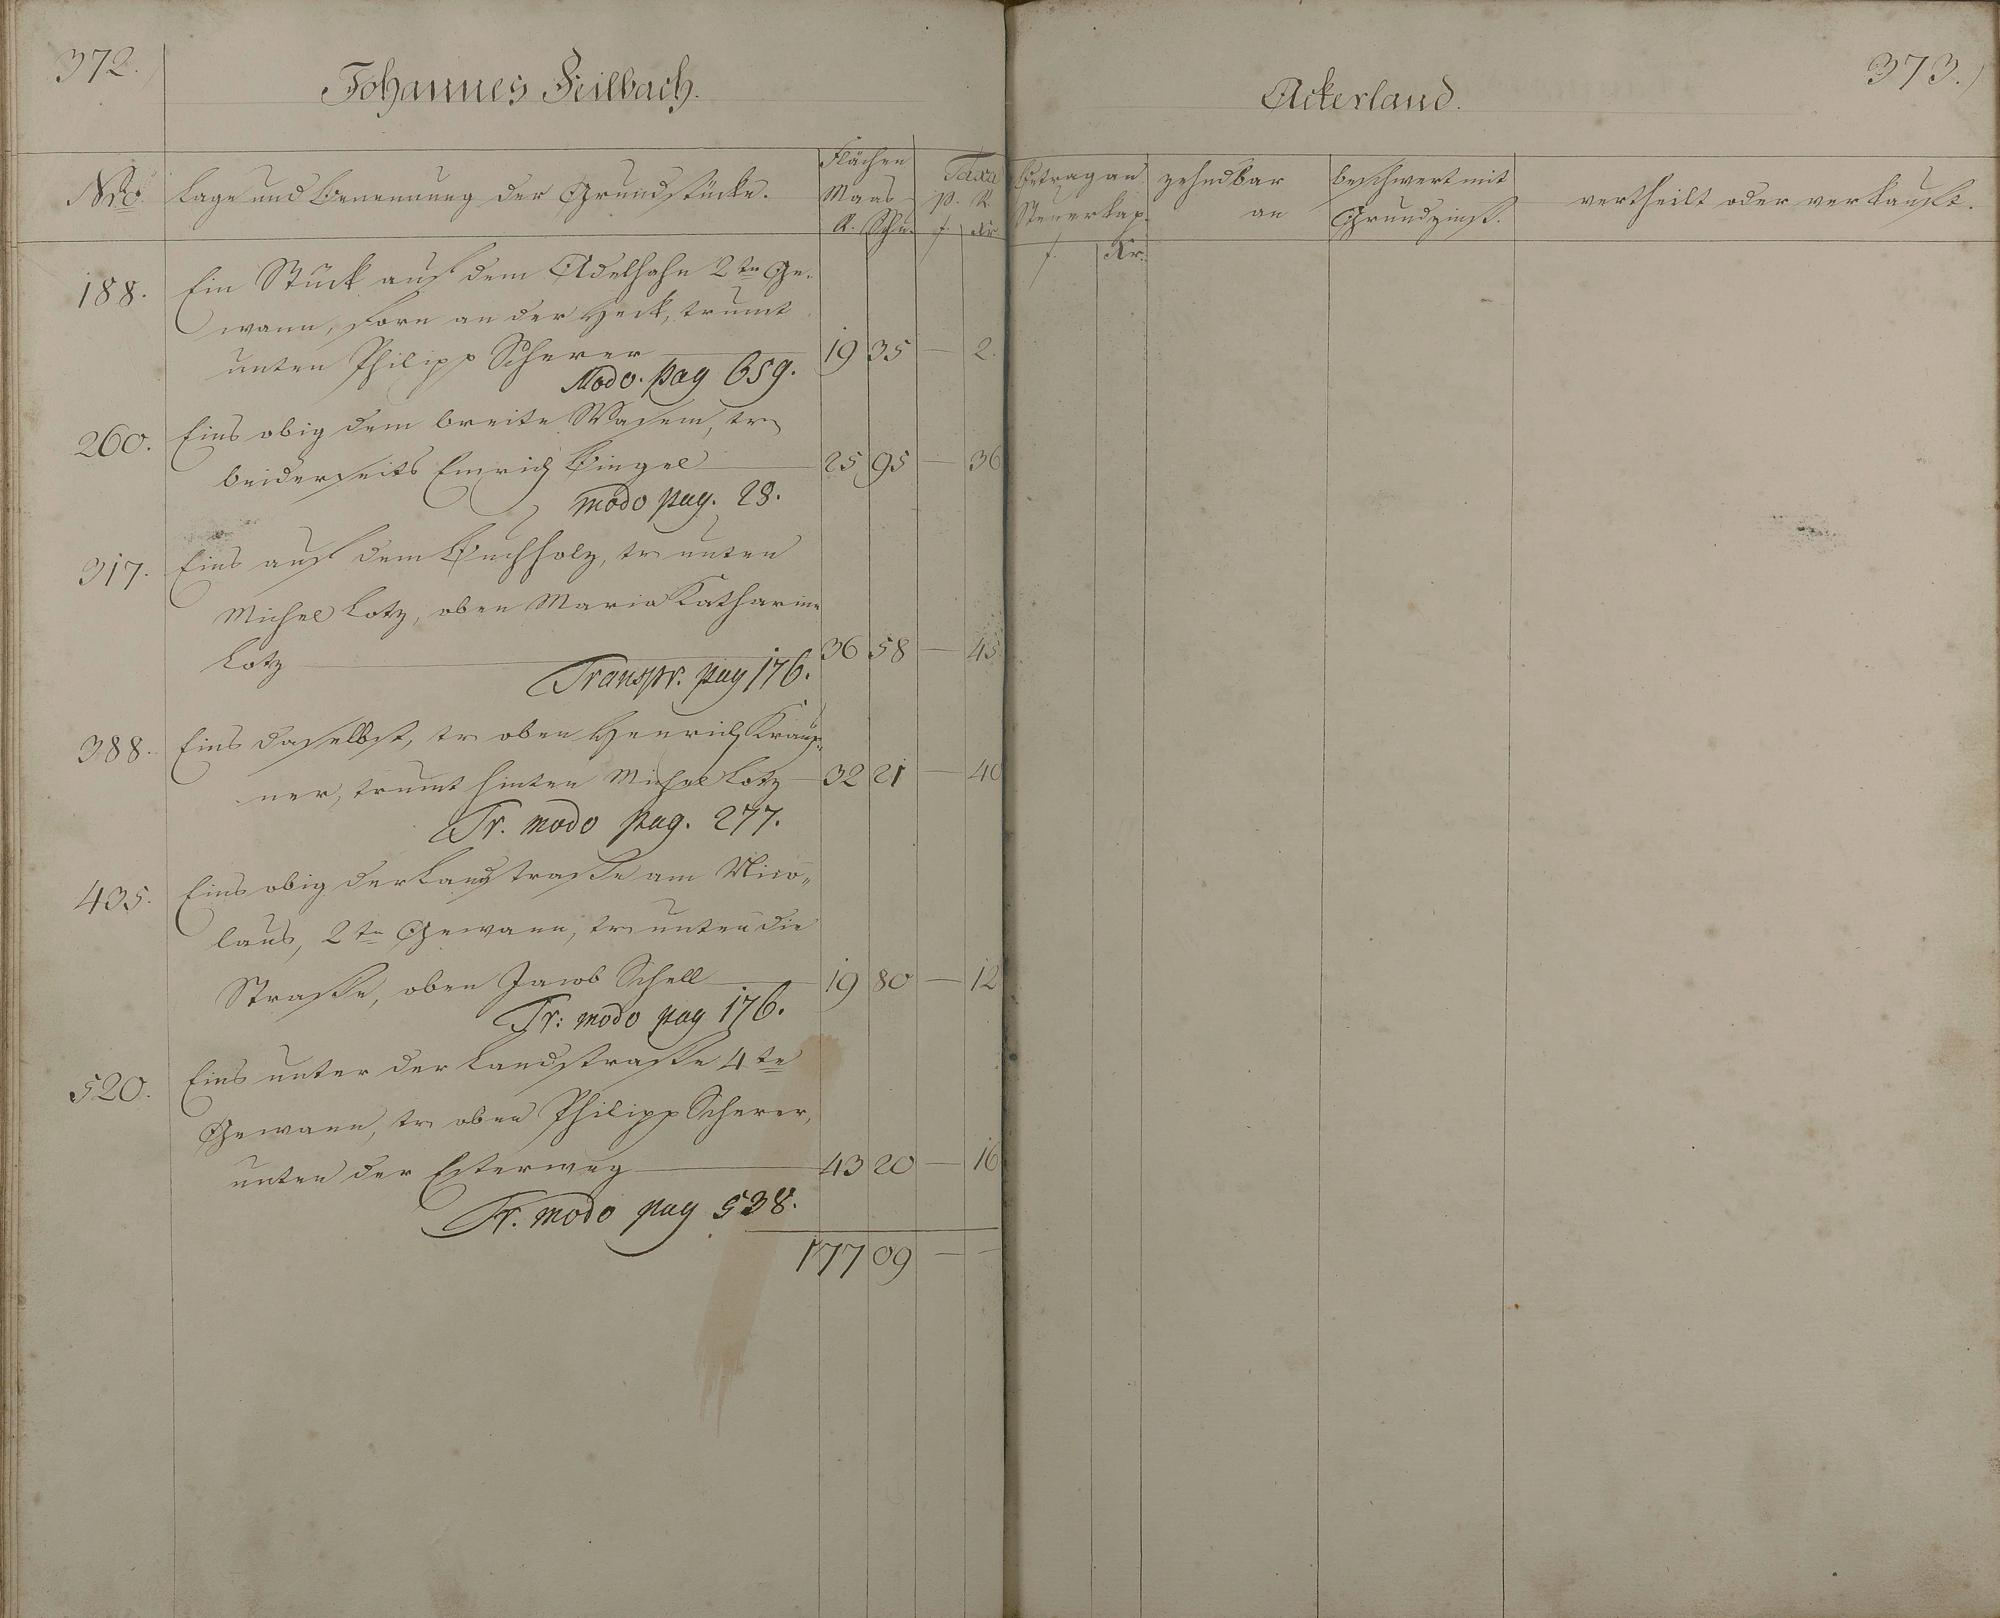 372.
Johannes Feilbach.
Nro.
Lage und Benennung der Grundstücke.
Flächen
Maas
R. Schu.
Taxa
p. R.
f. Kr.
188. Ein Stück auf dem Adelhahn 2te Ge-
wann, forn an der Heck, trumt
unten Philipp Scherer 19 35 — 2.
Modo. pag 659.
260. Eins obig dem breite Wasem, tr
beiderseits Emrich Bingel 25 95 — 36
modo pag. 28.
317. Eins auf dem Buchholz, tr unten
Michel Lotz, oben Maria Katharine
Lotz 36 58 — 45
Transpr. pag 176.
388. Eins daselbst, tr oben Henrich
ner, trumt hinten Michel Lotz 32 21 — 40
Tr. modo pag. 277.
435. Eins obig der Landstraße am Nico„
laus, 2te Gewann, tr unten die
Straße, oben Jacob Schell 19 80 — 12
Tr: modo pag 176.
520. Eins unter der Landstraße 4te
Gewann, tr oben Philipp Scherer,
unten der Esterweg 43 20 — 16
Tr. modo pag 538.
177 09 — —
373.
Ackerland.
Betrag an
Steuerkap.
f. Kr.
zehndbar
an
beschwert mit
Grundzinß.
vertheilt oder verkauft.